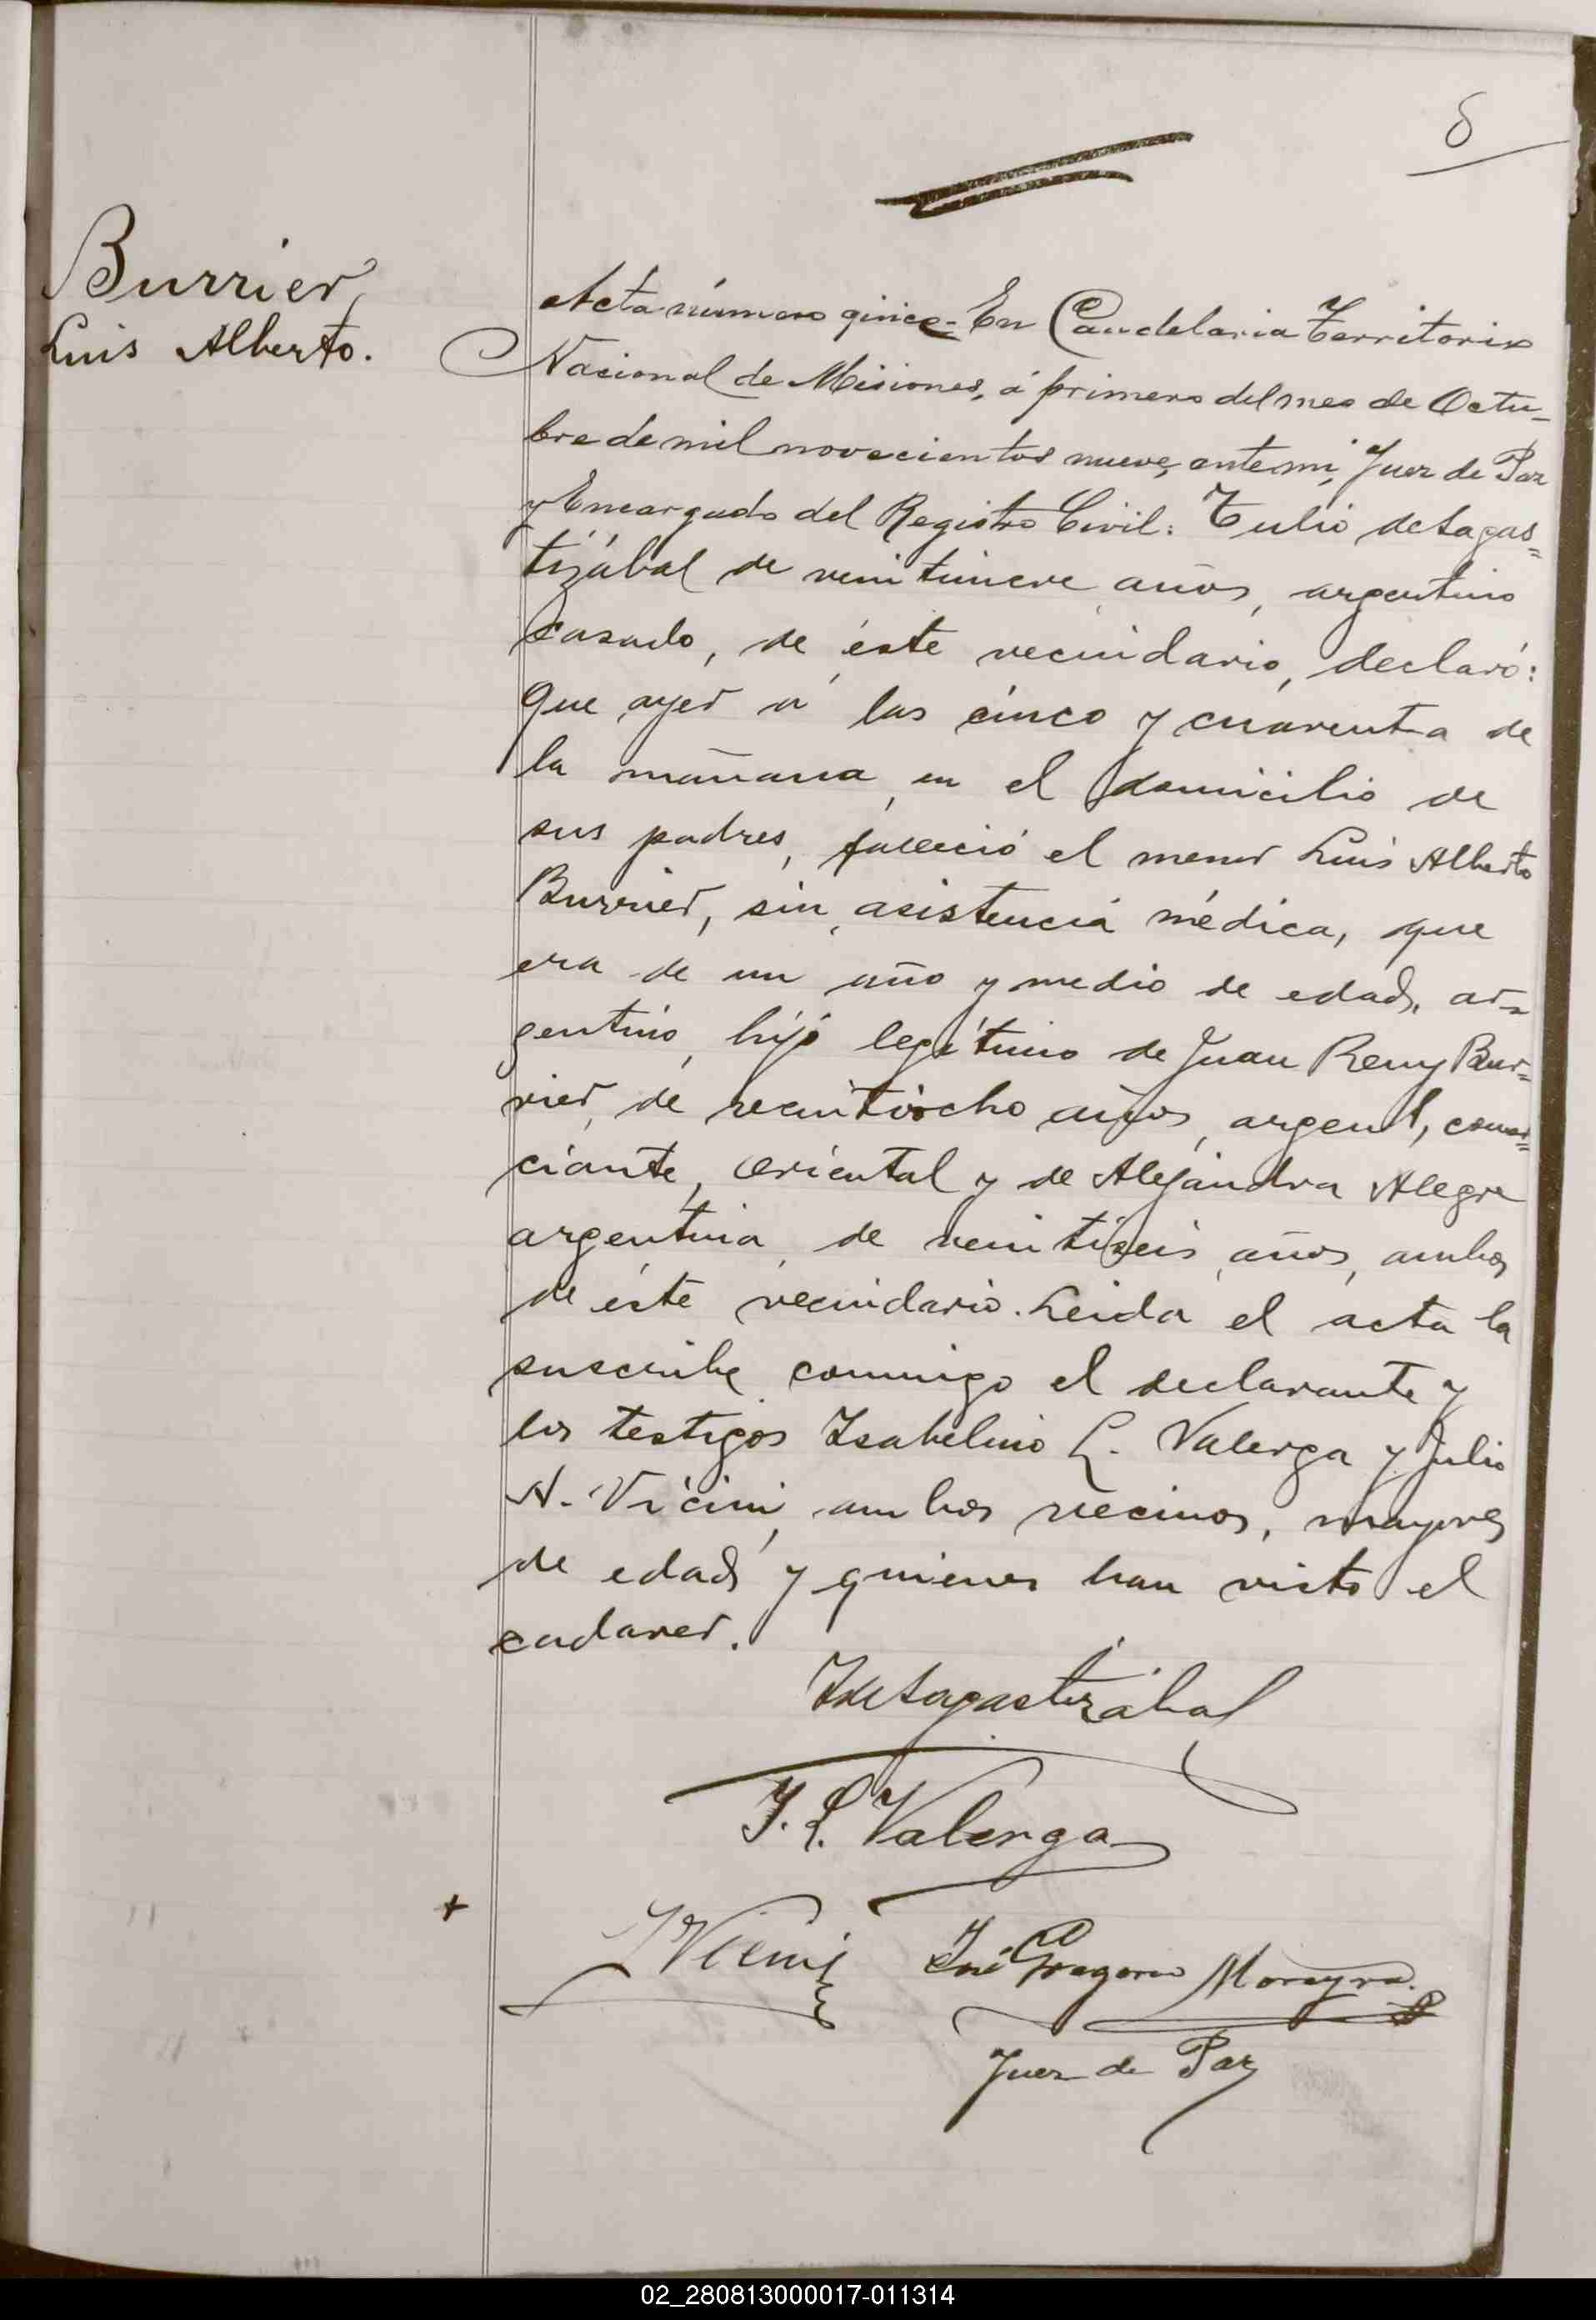 8
Burrier,
Luis Alberto.
Acta número qince- En Candelaria Territorio
Nacional de Misiones, á primero del mes de Octu-
bre de mil novecientos nueve, ante mi, Juez de Paz
y Encargado del Registro Civil: Tulio de Sagas=
tizábal de veintinueve años, argentino
casado, de éste vecindario, declaró:
Que ayer á las cinco y cuarenta de
la mañana, en el domicilio de
sus padres, falleció el menor Luis Alberto
Burrier, sin asistencia médica, que
era de un año y medio de edad, ar-
gentino, hijo legítimo de Juan Remy Bur=
rier, de veintiocho años, argent, comer=
ciante, oriental y de Alejandra Alegre
argentina, de veintiseis años, ambos
de éste vecindario. Leida el acta la
suscribe conmigo el declarante y
los testigos Isabelino L. Valerga y Julio
A. Vicini, ambos vecinos, mayores
de edad y quienes han visto el
cadaver.
TdeSagastizábal
I. L. Valerga
+
JVicini
José Gregorio Moreyra.
Juez de Paz
02_280813000017-011314